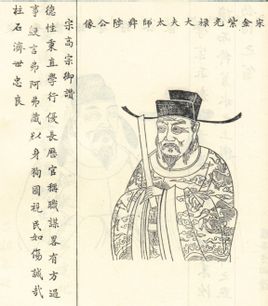 宋金紫光祿大夫太師舜陸公像
宋高宗御讚
德性秉直學行優長歷官稱職謀畧有方遇
事敢言弗阿弗藏以身狥國視民如傷誠哉
柱石濟世忠良